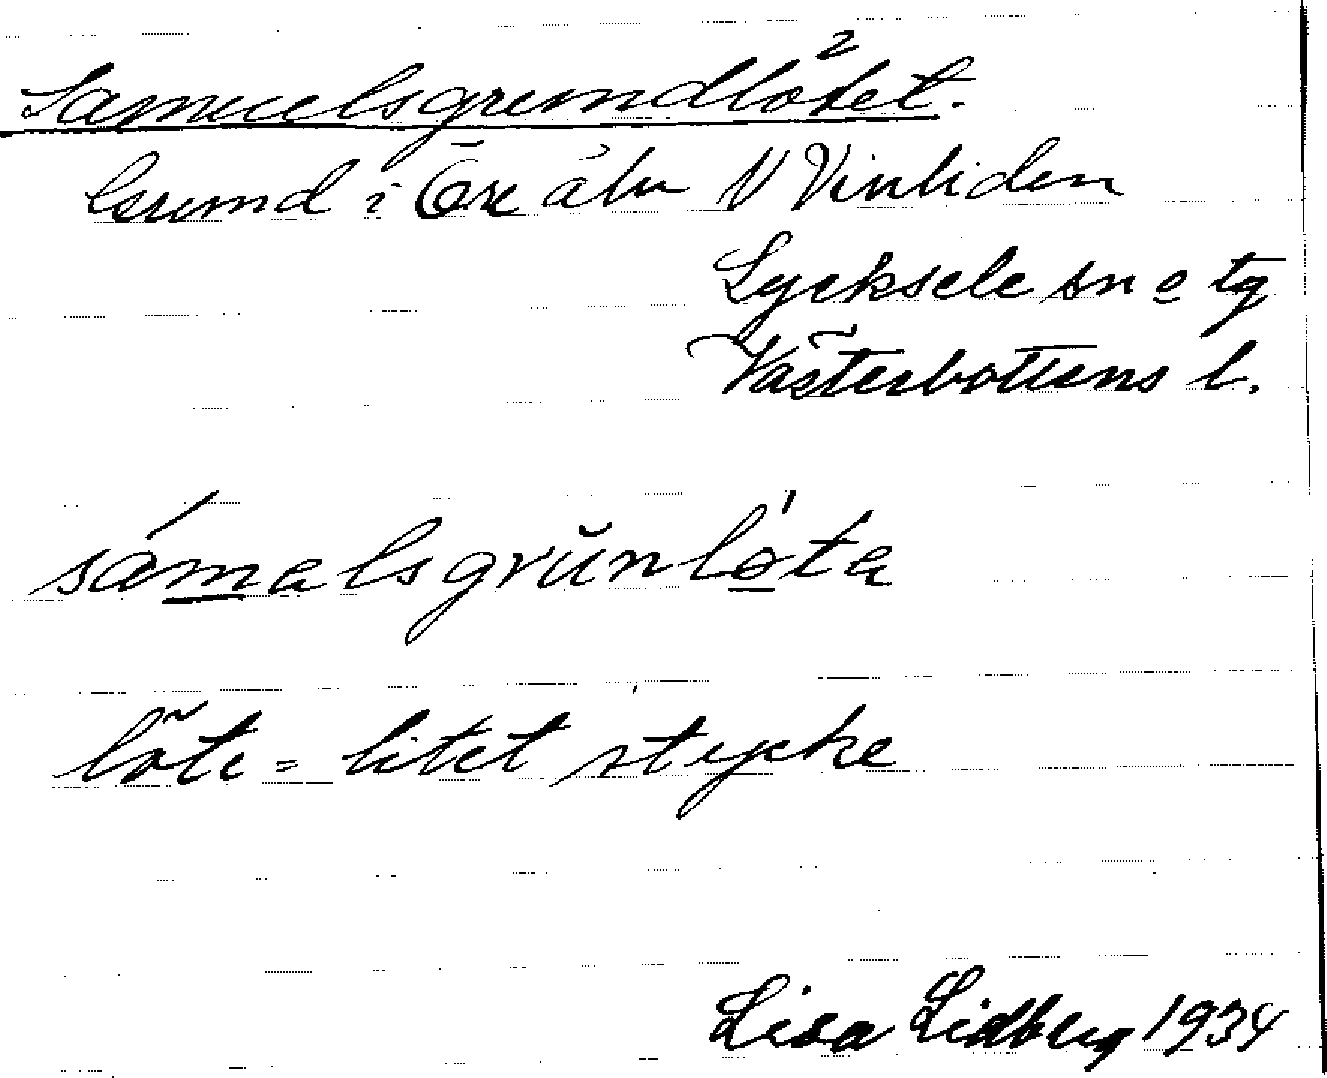 Samuelsgrundlötet.
Grund i Öre älv V Vinliden
Lycksele sn o tg
Västerbottens l.
sámalsgrŭnlóta
löte = litet stycke
Lisa Lidberg 1934